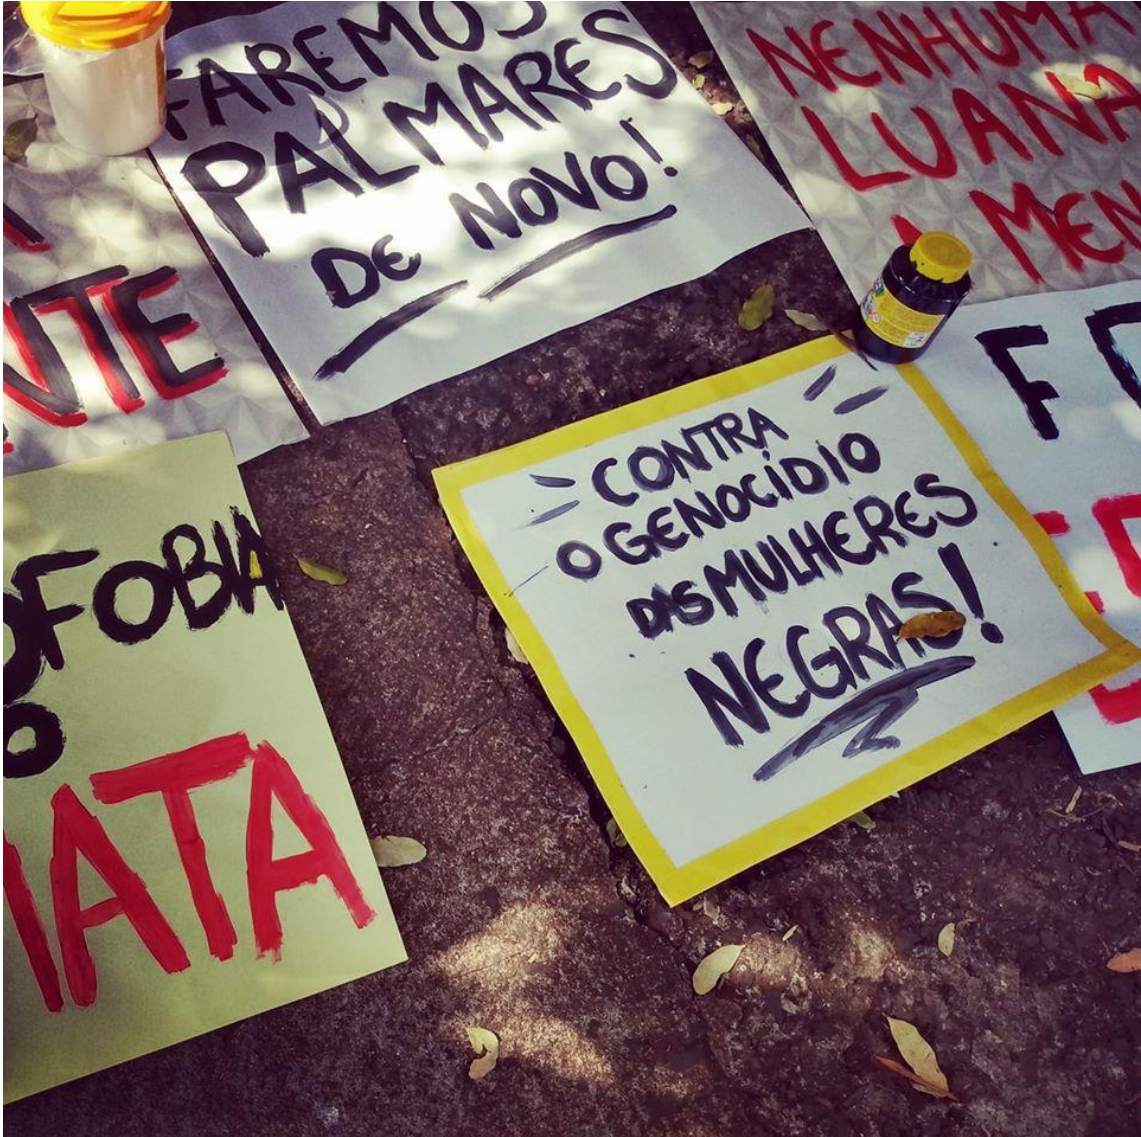 FAREMOS
PALMARES
DE NOVO!
NENHUMA
LUANA
A MEN
NTE
CONTRA
O GENOCÍDIO
DAS MULHERES
NEGRAS!
OFOBIA
MATA